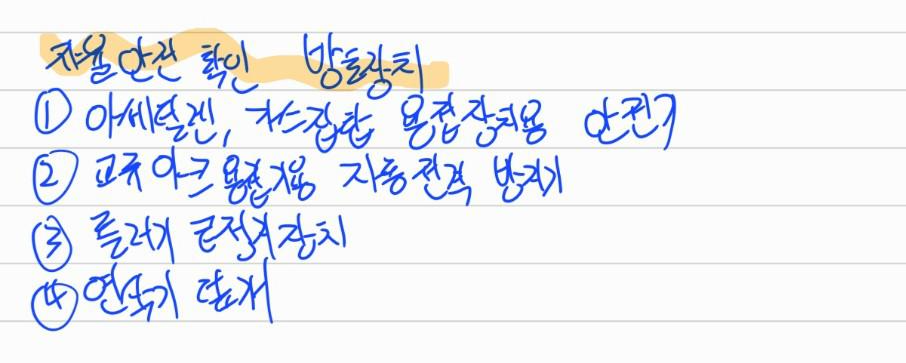 자율안전 확인 방호장치
① 아세틸렌, 가스집합 용접장치용 안전기
② 교류아크 용접기용 자동전격 방지기
③ 롤러기 급정지장치
④ 연삭기 덮개